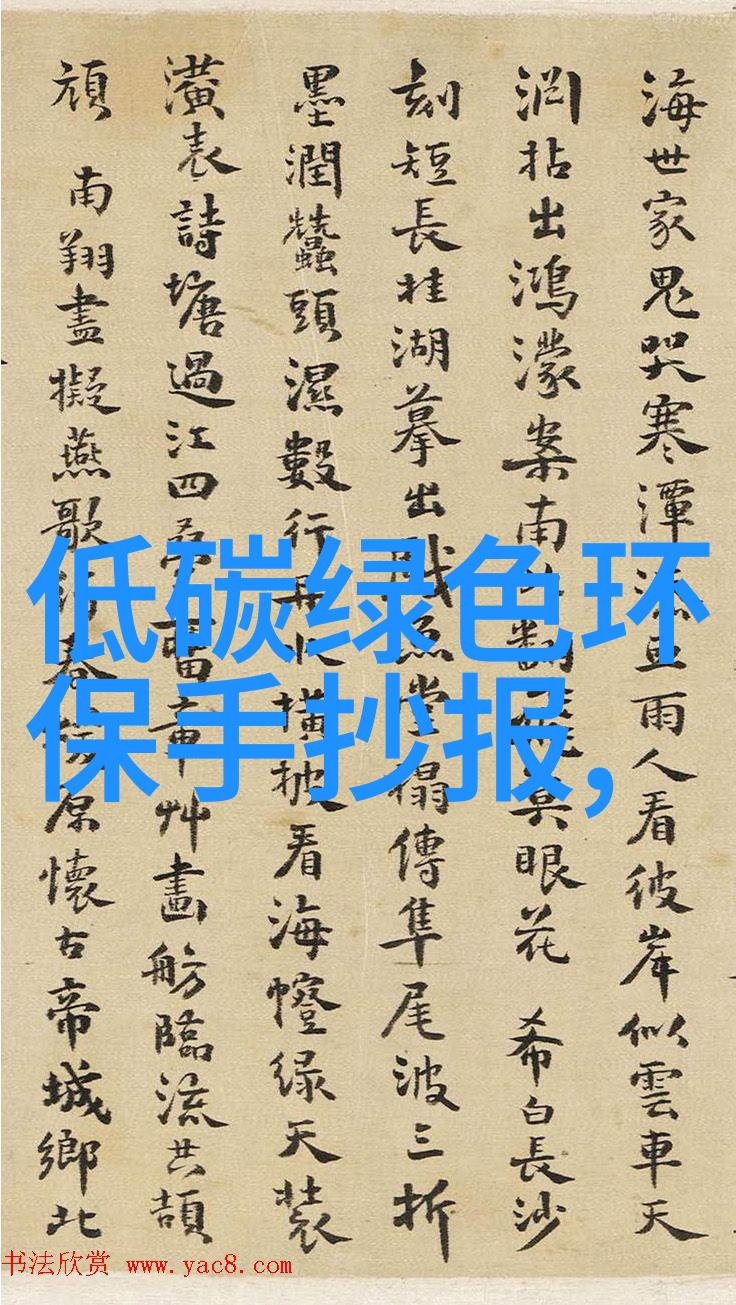 海世家鬼哭寒潭添豆雨人看彼岸似雲車天
拈出鴻濛案南翻眼花 希白長沙
刻短長桂湖摹出魚堂榻傳隼尾波三折
墨潤蠶頭濕數行再橫披看海幢綠天裝
潢表詩塘過江四章艸畫舫臨流共頡
頏 南翔盡擬燕歌行春原懷古帝城鄉北
低碳绿色环
保手抄报,
书法欣赏 www.yac8.com